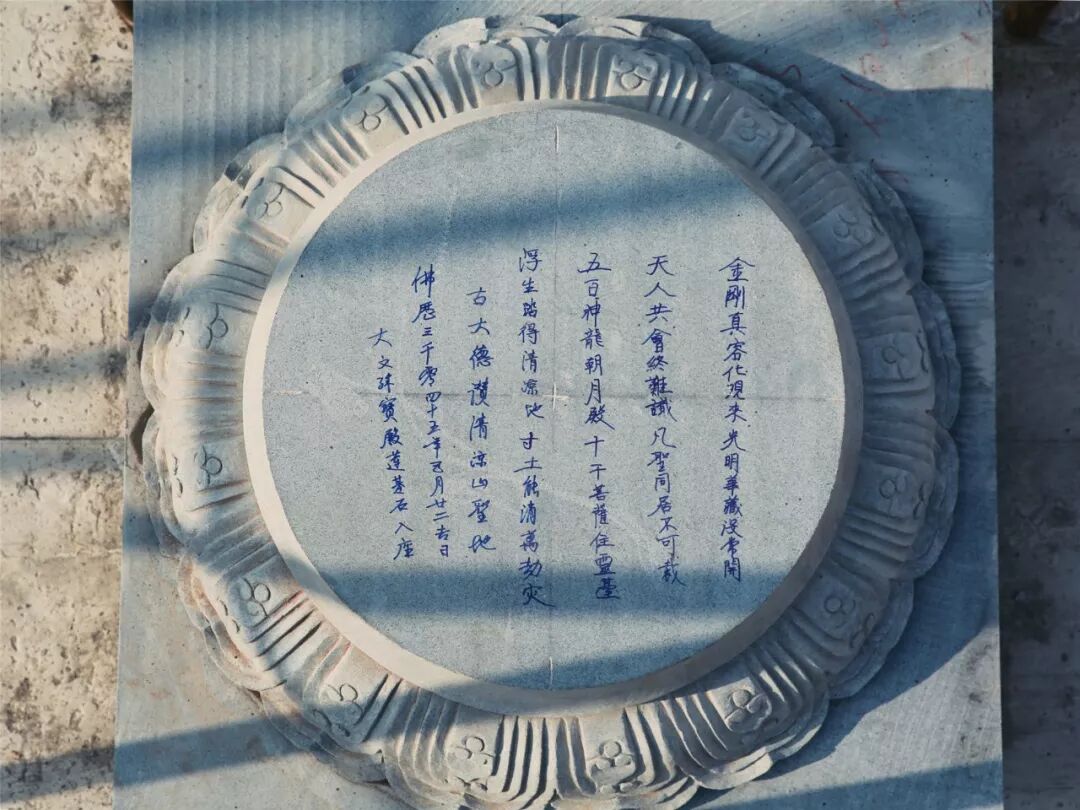 金剛真容化現來光明華藏沒常開
天人共會終難識凡聖同居不可裁
五百神龍朝月殿十千菩薩住靈臺
浮生踏得清凉地寸土能消萬劫灾
古大德讚清凉山聖地
佛曆三千零四十五年五月廿二吉日
大文殊寳殿蓮基石入座